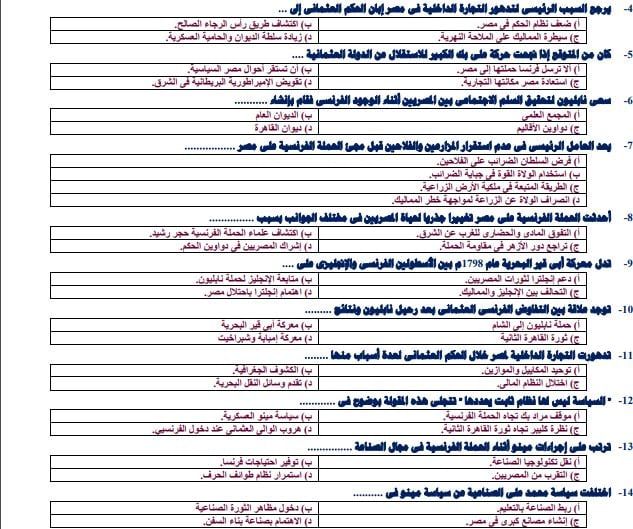 4- يرجع السبب الرئيسى لتدهور التجارة الداخلية فى مصر إبان الحكم العثمانى إلى ...
أ) ضعف نظام الحكم في مصر.
ب) اكتشاف طريق رأس الرجاء الصالح.
ج) سيطرة المماليك على الملاحة النهرية.
د) زيادة سلطة الديوان والحامية العسكرية.
5- كان من المتوقع إذا نجحت حركة على بك الكبير للاستقلال عن الدولة العثمانية ....
أ) ألا ترسل فرنسا حملتها إلى مصر.
ب) أن تستقر أحوال مصر السياسية.
ج) استعادة مصر مكانتها التجارية.
د) تقويض الإمبراطورية البريطانية في الشرق.
6- سعى نابليون لتحقيق السلم الاجتماعى بين المصريين أثناء الوجود الفرنسى فقام بإنشاء ...........
أ) المجمع العلمي
ب) الديوان العام
ج) دواوين الأقاليم
د) ديوان القاهرة
7- يعد العامل الرئيسى فى عدم استقرار المزارعين والفلاحين قبل مجئ الحملة الفرنسية على مصر .................
أ) فرض السلطان الضرائب على الفلاحين.
ب) استخدام الولاة القوة في جباية الضرائب.
ج) الطريقة المتبعة في ملكية الأرض الزراعية.
د) انصراف الولاة عن الزراعة لمواجهة خطر المماليك.
8- أحدثت الحملة الفرنسية على مصر تغييرا جذريا لحياة المصريين فى مختلف الجوانب بسبب ...............
أ) التفوق المادى والحضارى للغرب عن الشرق.
ب) اكتشاف علماء الحملة الفرنسية حجر رشيد.
ج) تراجع دور الأزهر في مقاومة الحملة.
د) إشراك المصريين في دواوين الحكم.
9- تدل معركة أبى قير البحرية عام 1798م بين الأسطولين الفرنسى والإنجليزى على ....
أ) دعم إنجلترا لثورات المصريين.
ب) متابعة الإنجليز لحملة نابليون.
ج) التحالف بين الإنجليز والمماليك.
د) اهتمام إنجلترا باحتلال مصر.
10- توجد علاقة بين التفاوض الفرنسى العثمانى بعد رحيل نابليون ونتائج .........
أ) حملة نابليون إلى الشام
ب) معركة أبي قير البحرية
ج) ثورة القاهرة الثانية
د) معركة إمبابة وشبراخيت
11- تدهورت التجارة الداخلية لمصر خلال الحكم العثمانى لعدة أسباب منها ........
أ) توحيد المكاييل والموازين.
ب) الكشوف الجغرافية.
ج) اختلال النظام المالى.
د) تقدم وسائل النقل البحرية.
12- " السياسة ليس لها نظام ثابت يحددها " تتجلى هذه المقولة بوضوح فى ............
أ) موقف مراد بك تجاه الحملة الفرنسية.
ب) سياسة مينو العسكرية.
ج) نظرة كليبر تجاه ثورة القاهرة الثانية.
د) هروب الوالي العثماني عند دخول الفرنسيي.
13- ترتب على إجراءات مينو أثناء الحملة الفرنسية فى مجال الصناعة ...............
أ) نقل تكنولوجيا الصناعة.
ب) توفير احتياجات فرنسا.
ج) التقرب من المصريين.
د) استمرار نظام طوائف الحرف.
14- اختلفت سياسة محمد على الصناعية عن سياسة مينو فى ..........
أ) ربط الصناعة بالتعليم.
ب) دخول مظاهر الثورة الصناعية
ج) إنشاء مصانع كبرى في مصر.
د) الاهتمام بصناعة بناء السفن.